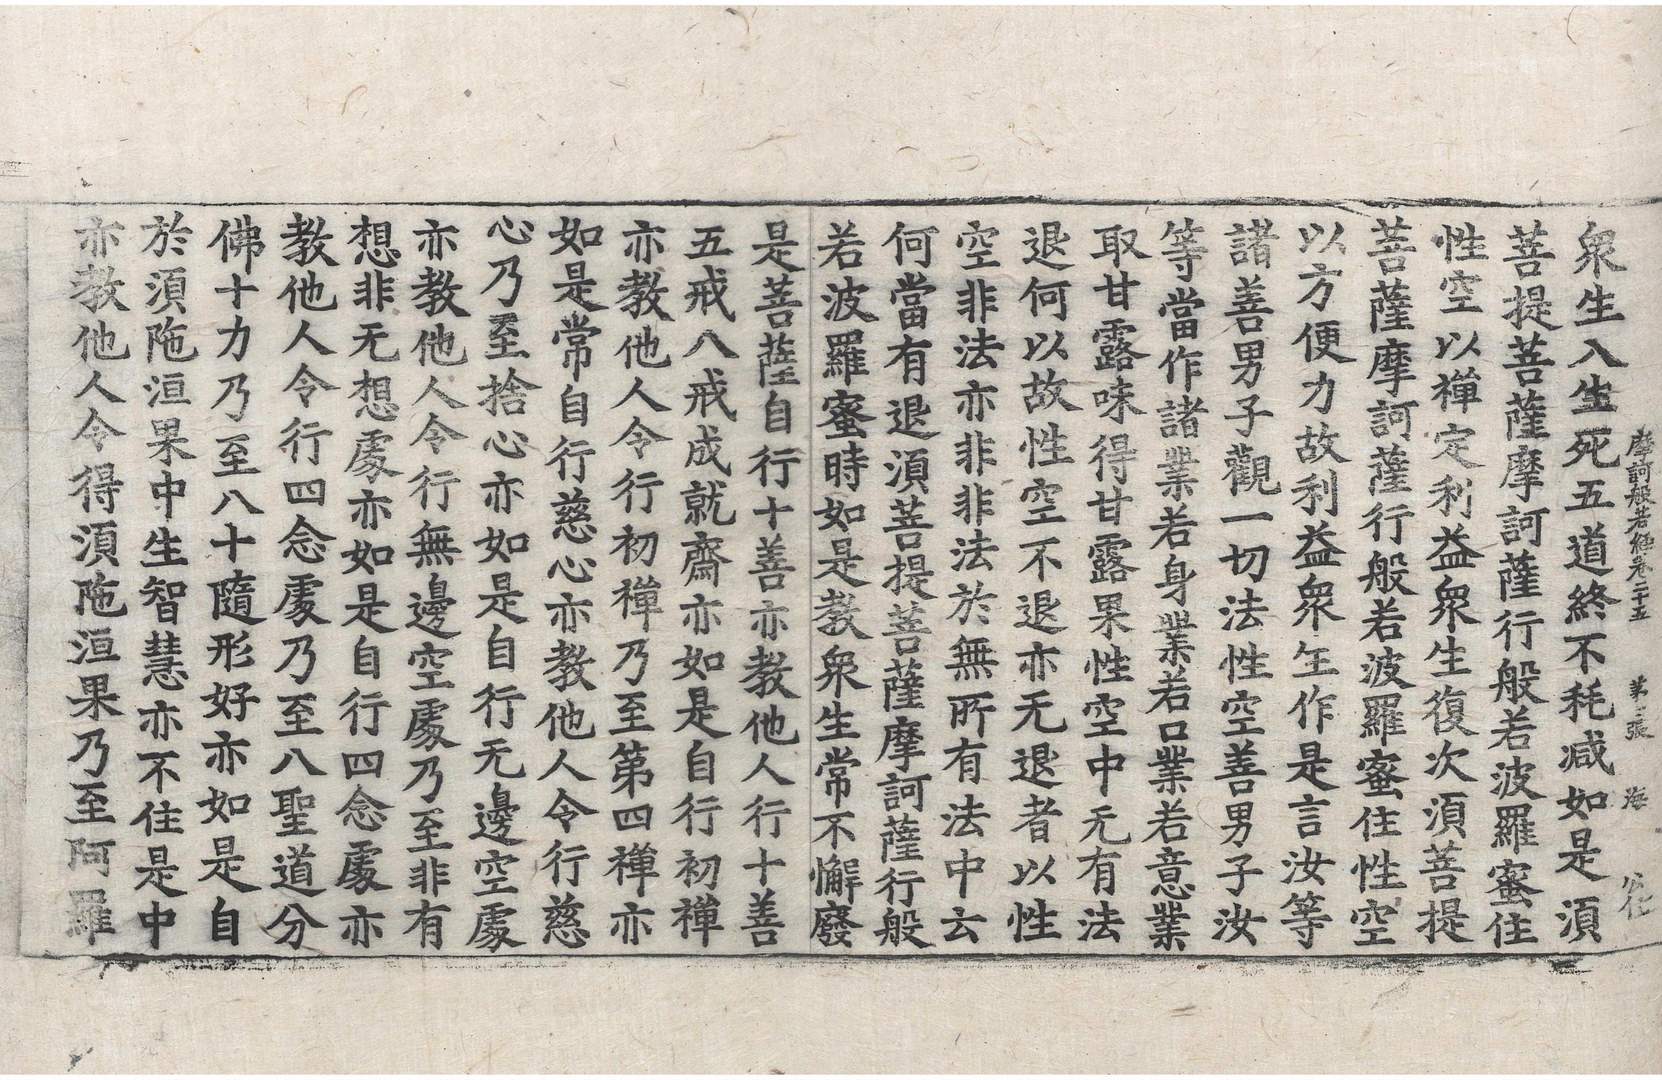 摩訶般若經卷二十五 第三張 海
衆生入生死五道終不耗減如是湏
菩提菩薩摩訶薩行般若波羅蜜住
性空以禪定利益衆生復次湏菩提
菩薩摩訶薩行般若波羅蜜住性空
以方便力故利益衆生作是言汝等
諸善男子觀一切法性空善男子汝
等當作諸業若身業若口業若意業
取甘露味得甘露果性空中无有法
退何以故性空不退亦无退者以性
空非法亦非非法於無所有法中云
何當有退湏菩提菩薩摩訶薩行般
若波羅蜜時如是教衆生常不懈廢
是菩薩自行十善亦教他人行十善
五戒八戒成就齋亦如是自行初禪
亦教他人令行初禪乃至第四禪亦
如是常自行慈心亦教他人令行慈
心乃至捨心亦如是自行无邊空處
亦教他人令行無邊空處乃至非有
想非无想處亦如是自行四念處亦
教他人令行四念處乃至八聖道分
佛十力乃至八十隨形好亦如是自
於湏陁洹果中生智慧亦不住是中
亦教他人令得湏陁洹果乃至阿羅